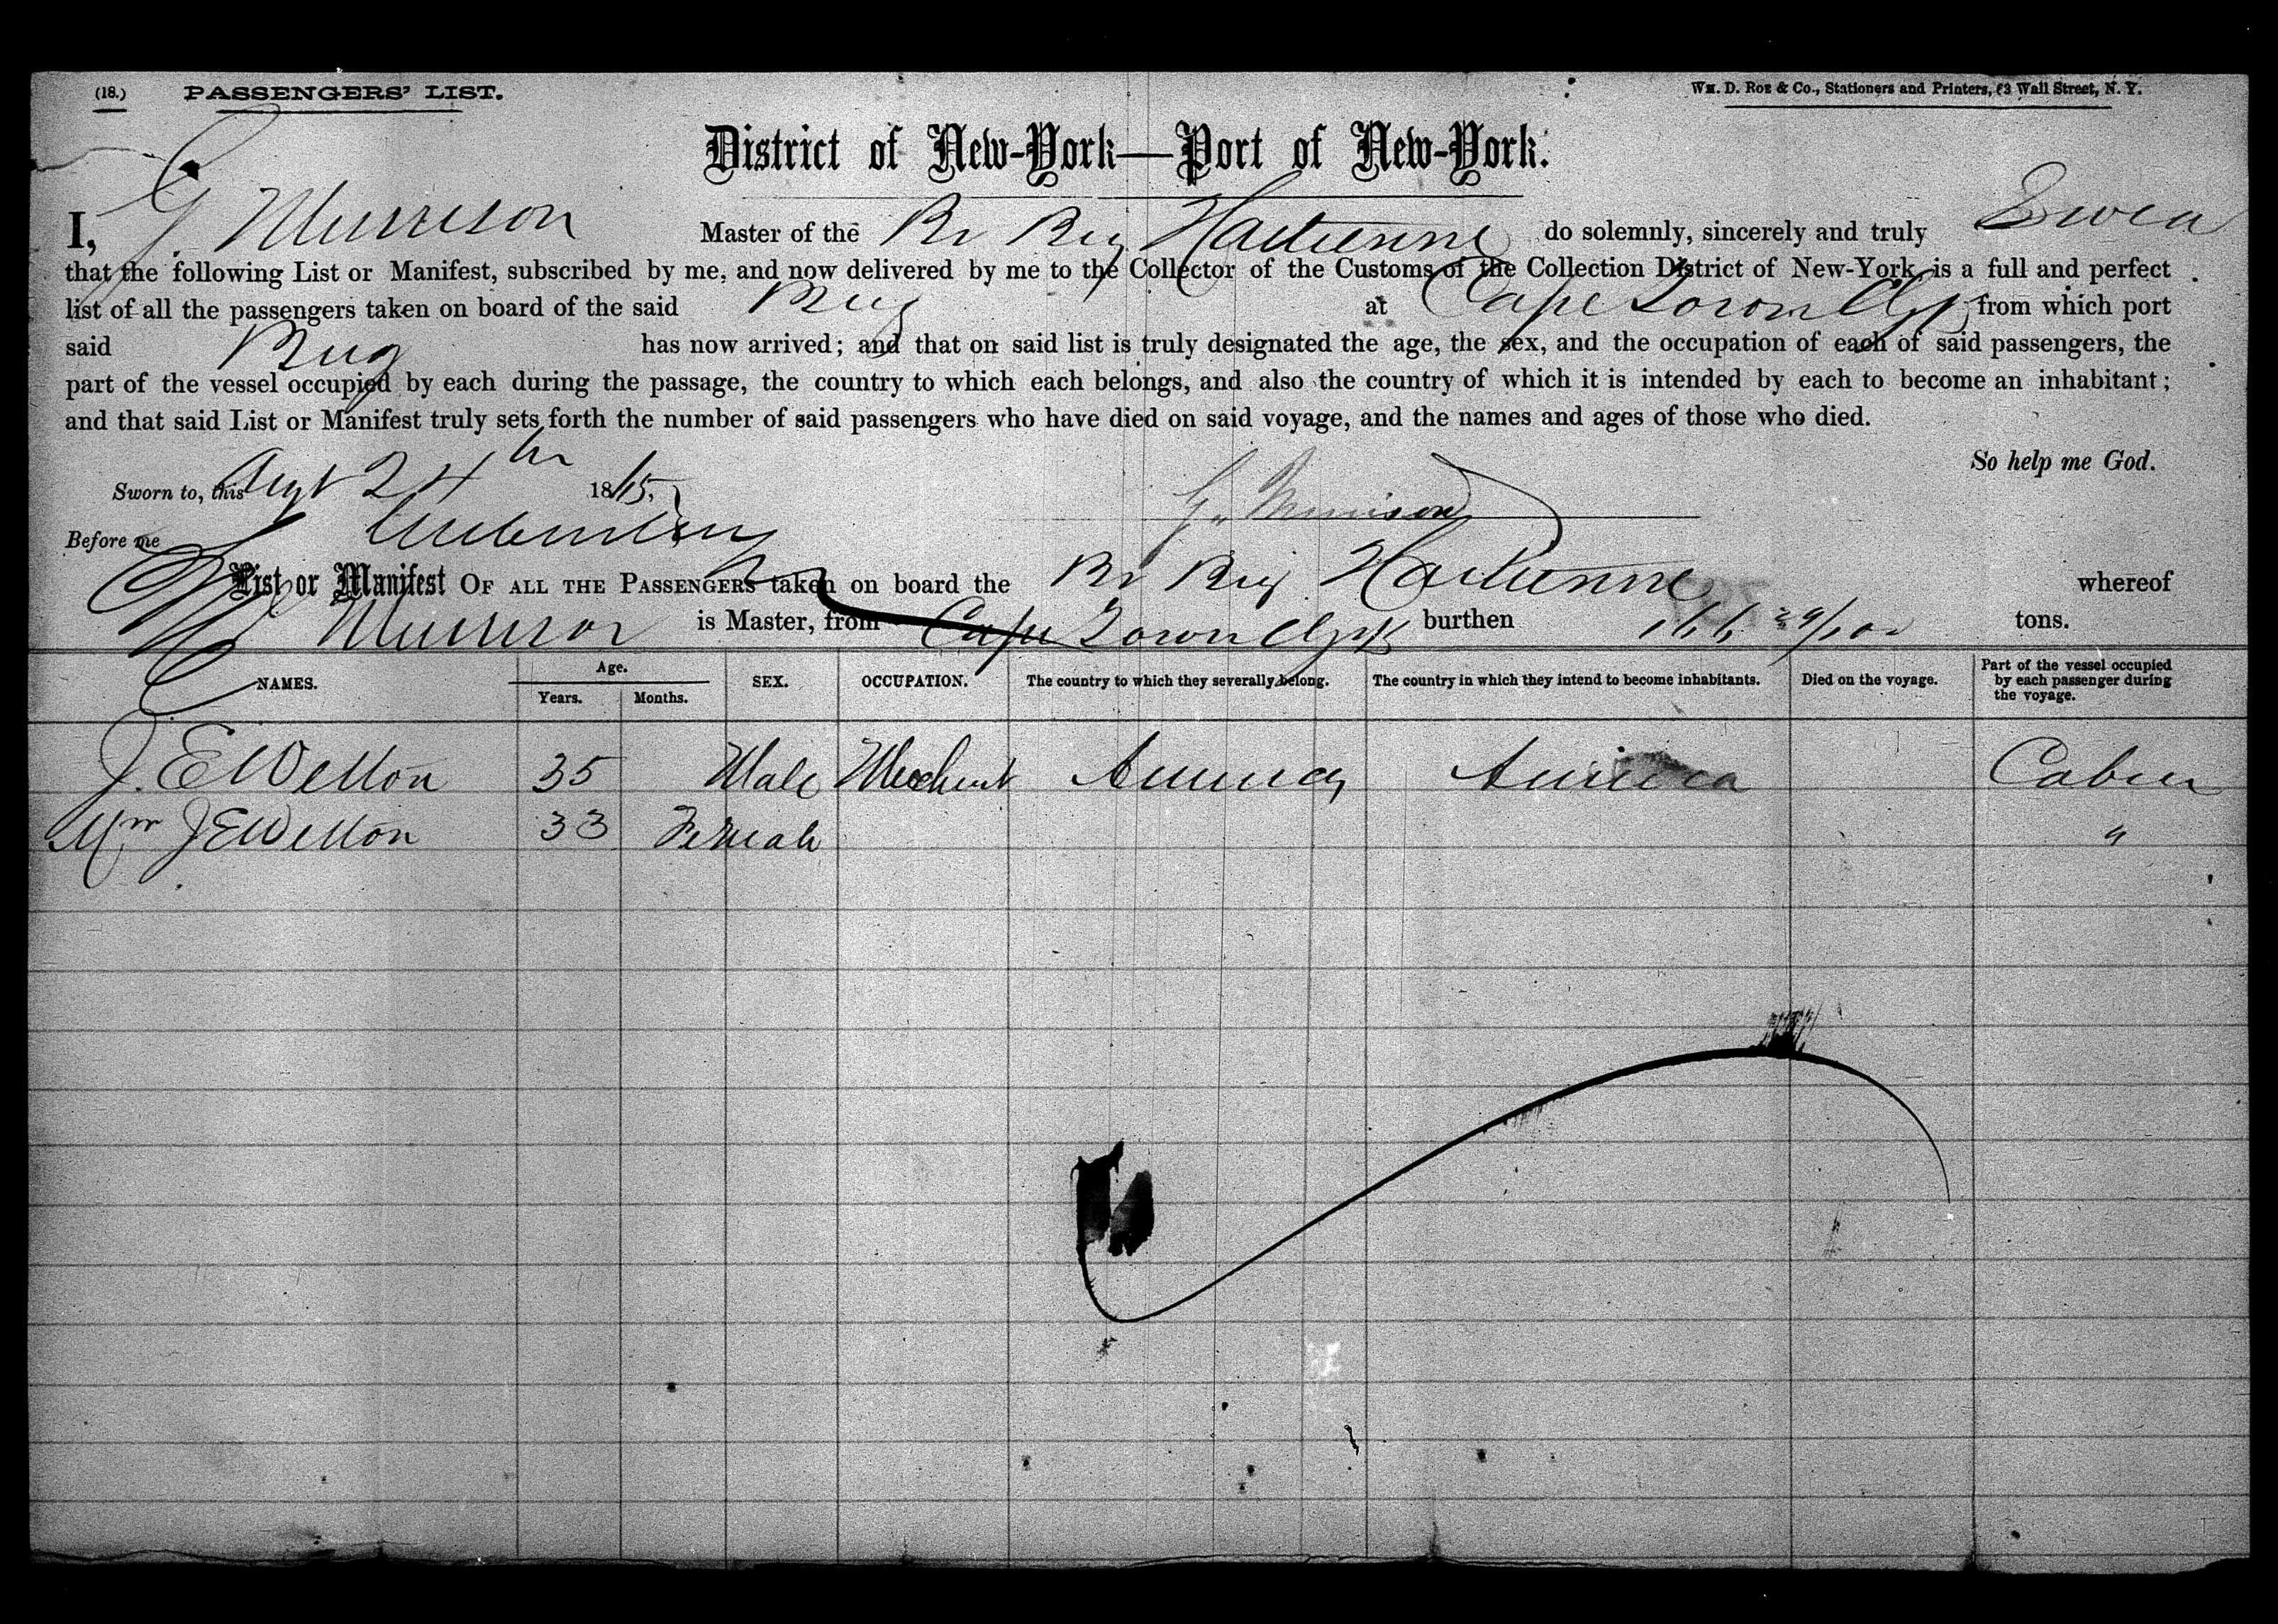 (18.) PASSENGERS' LIST. Wm. D. Roe & Co., Stationers and Printers, 63 Wall Street, N. Y.
District of New-York—Port of New-York.
I, G. Murrison Master of the Br Brig do solemnly, sincerely and truly Swear
that the following List or Manifest, subscribed by me, and now delivered by me to the Collector of the Customs of the Collection District of New-York, is a full and perfect
list of all the passengers taken on board of the said Brig at Cape Town from which port
said Brig has now arrived; and that on said list is truly designated the age, the sex, and the occupation of each of said passengers, the
part of the vessel occupied by each during the passage, the country to which each belongs, and also the country of which it is intended by each to become an inhabitant;
and that said List or Manifest truly sets forth the number of said passengers who have died on said voyage, and the names and ages of those who died.
So help me God.
Sworn to, this Augt 24th 18
Before me
List or Manifest OF ALL THE PASSENGERS taken on board the Br Brig whereof
Murrison is Master, from Cape Town burthen tons.
NAMES. Age. Years. Months. SEX. OCCUPATION. The country to which they severally belong. The country in which they intend to become inhabitants. Died on the voyage. Part of the vessel occupied by each passenger during the voyage.
J. E Welton 35 Male Merchant America America Cabin
Mrs J E Welton 33 Female "